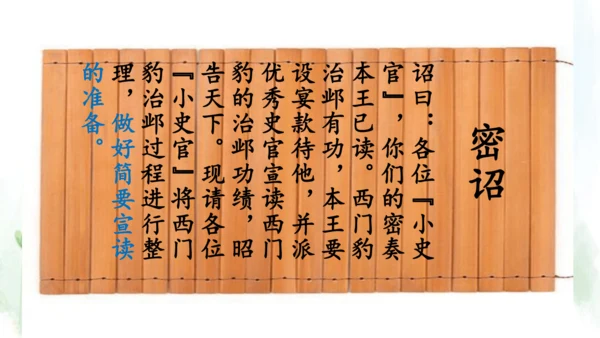 密诏
诏曰：各位『小史
官』，你们的密奏
本王已读。西门豹
治邺有功，本王要
设宴款待他，并派
优秀史官宣读西门
豹的治邺功绩，昭
告天下。现请各位
『小史官』将西门
豹治邺过程进行整
理，做好简要宣读
的准备。